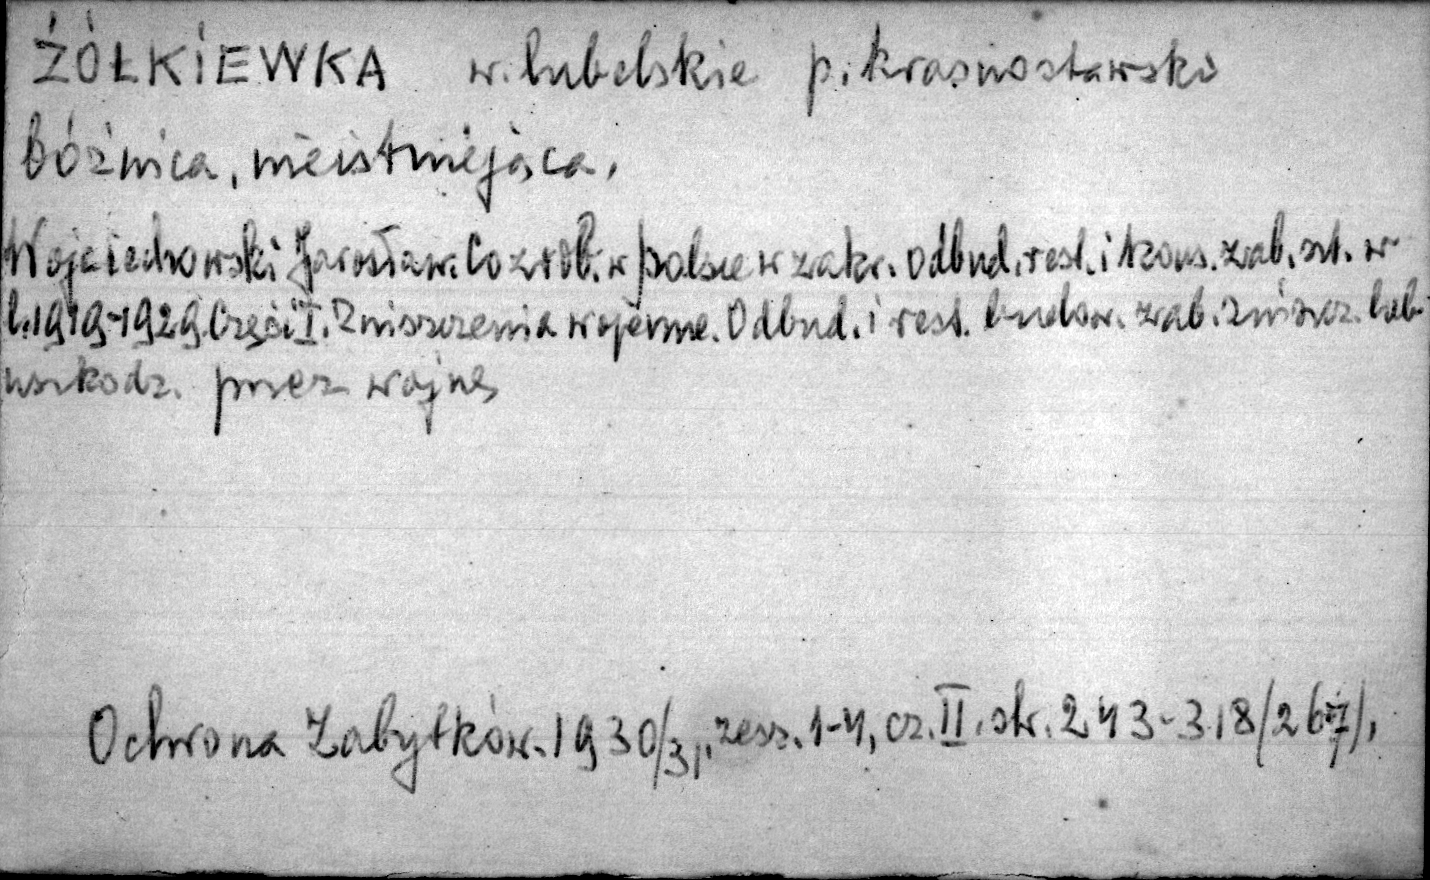 ŻÓŁKIEWKA w. lubelskie p. krasnostawski
Bóżnica, nieistniejąca,
Wojciechowski Jarosław. Co zrob. w Polsce w zakr. odbud. rest. i kons. zab. szt. w
l. 1919-1929. Część I. Zniszczenia wojenne. Odbud. i rest. budow. zab. zniszcz. lub
uszkodz. przez wojnę
Ochrona Zabytków. 1930/31, zesz. 1-4, cz. II. str. 243-318/267/,